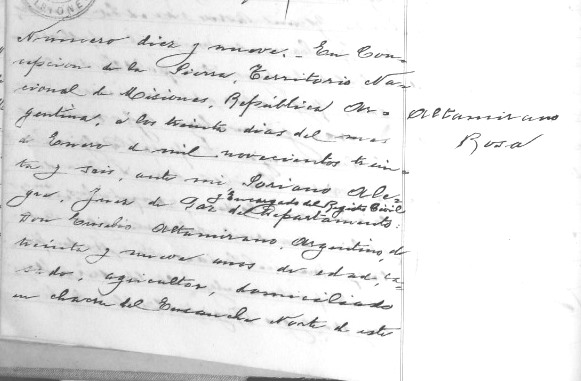 Número diez y nueve.- En Con-
cepcion de la Sierra, Territorio Na-
cional de Misiones, República Ar-
gentina, á los treinta dias del mes
de Enero de mil novecientos trein-
ta y seis, ante mi, Soriano Ale-
gre, Juez de Paz
y Encargado del Registro Civil
del Departamento:
Don Eusebio Altamirano, Argentino, de
treinta y nueve anos de edad, ca-
sado, agricultor, domiciliado
en chacra del Ensanche Norte de este
Altamirano
Rosa